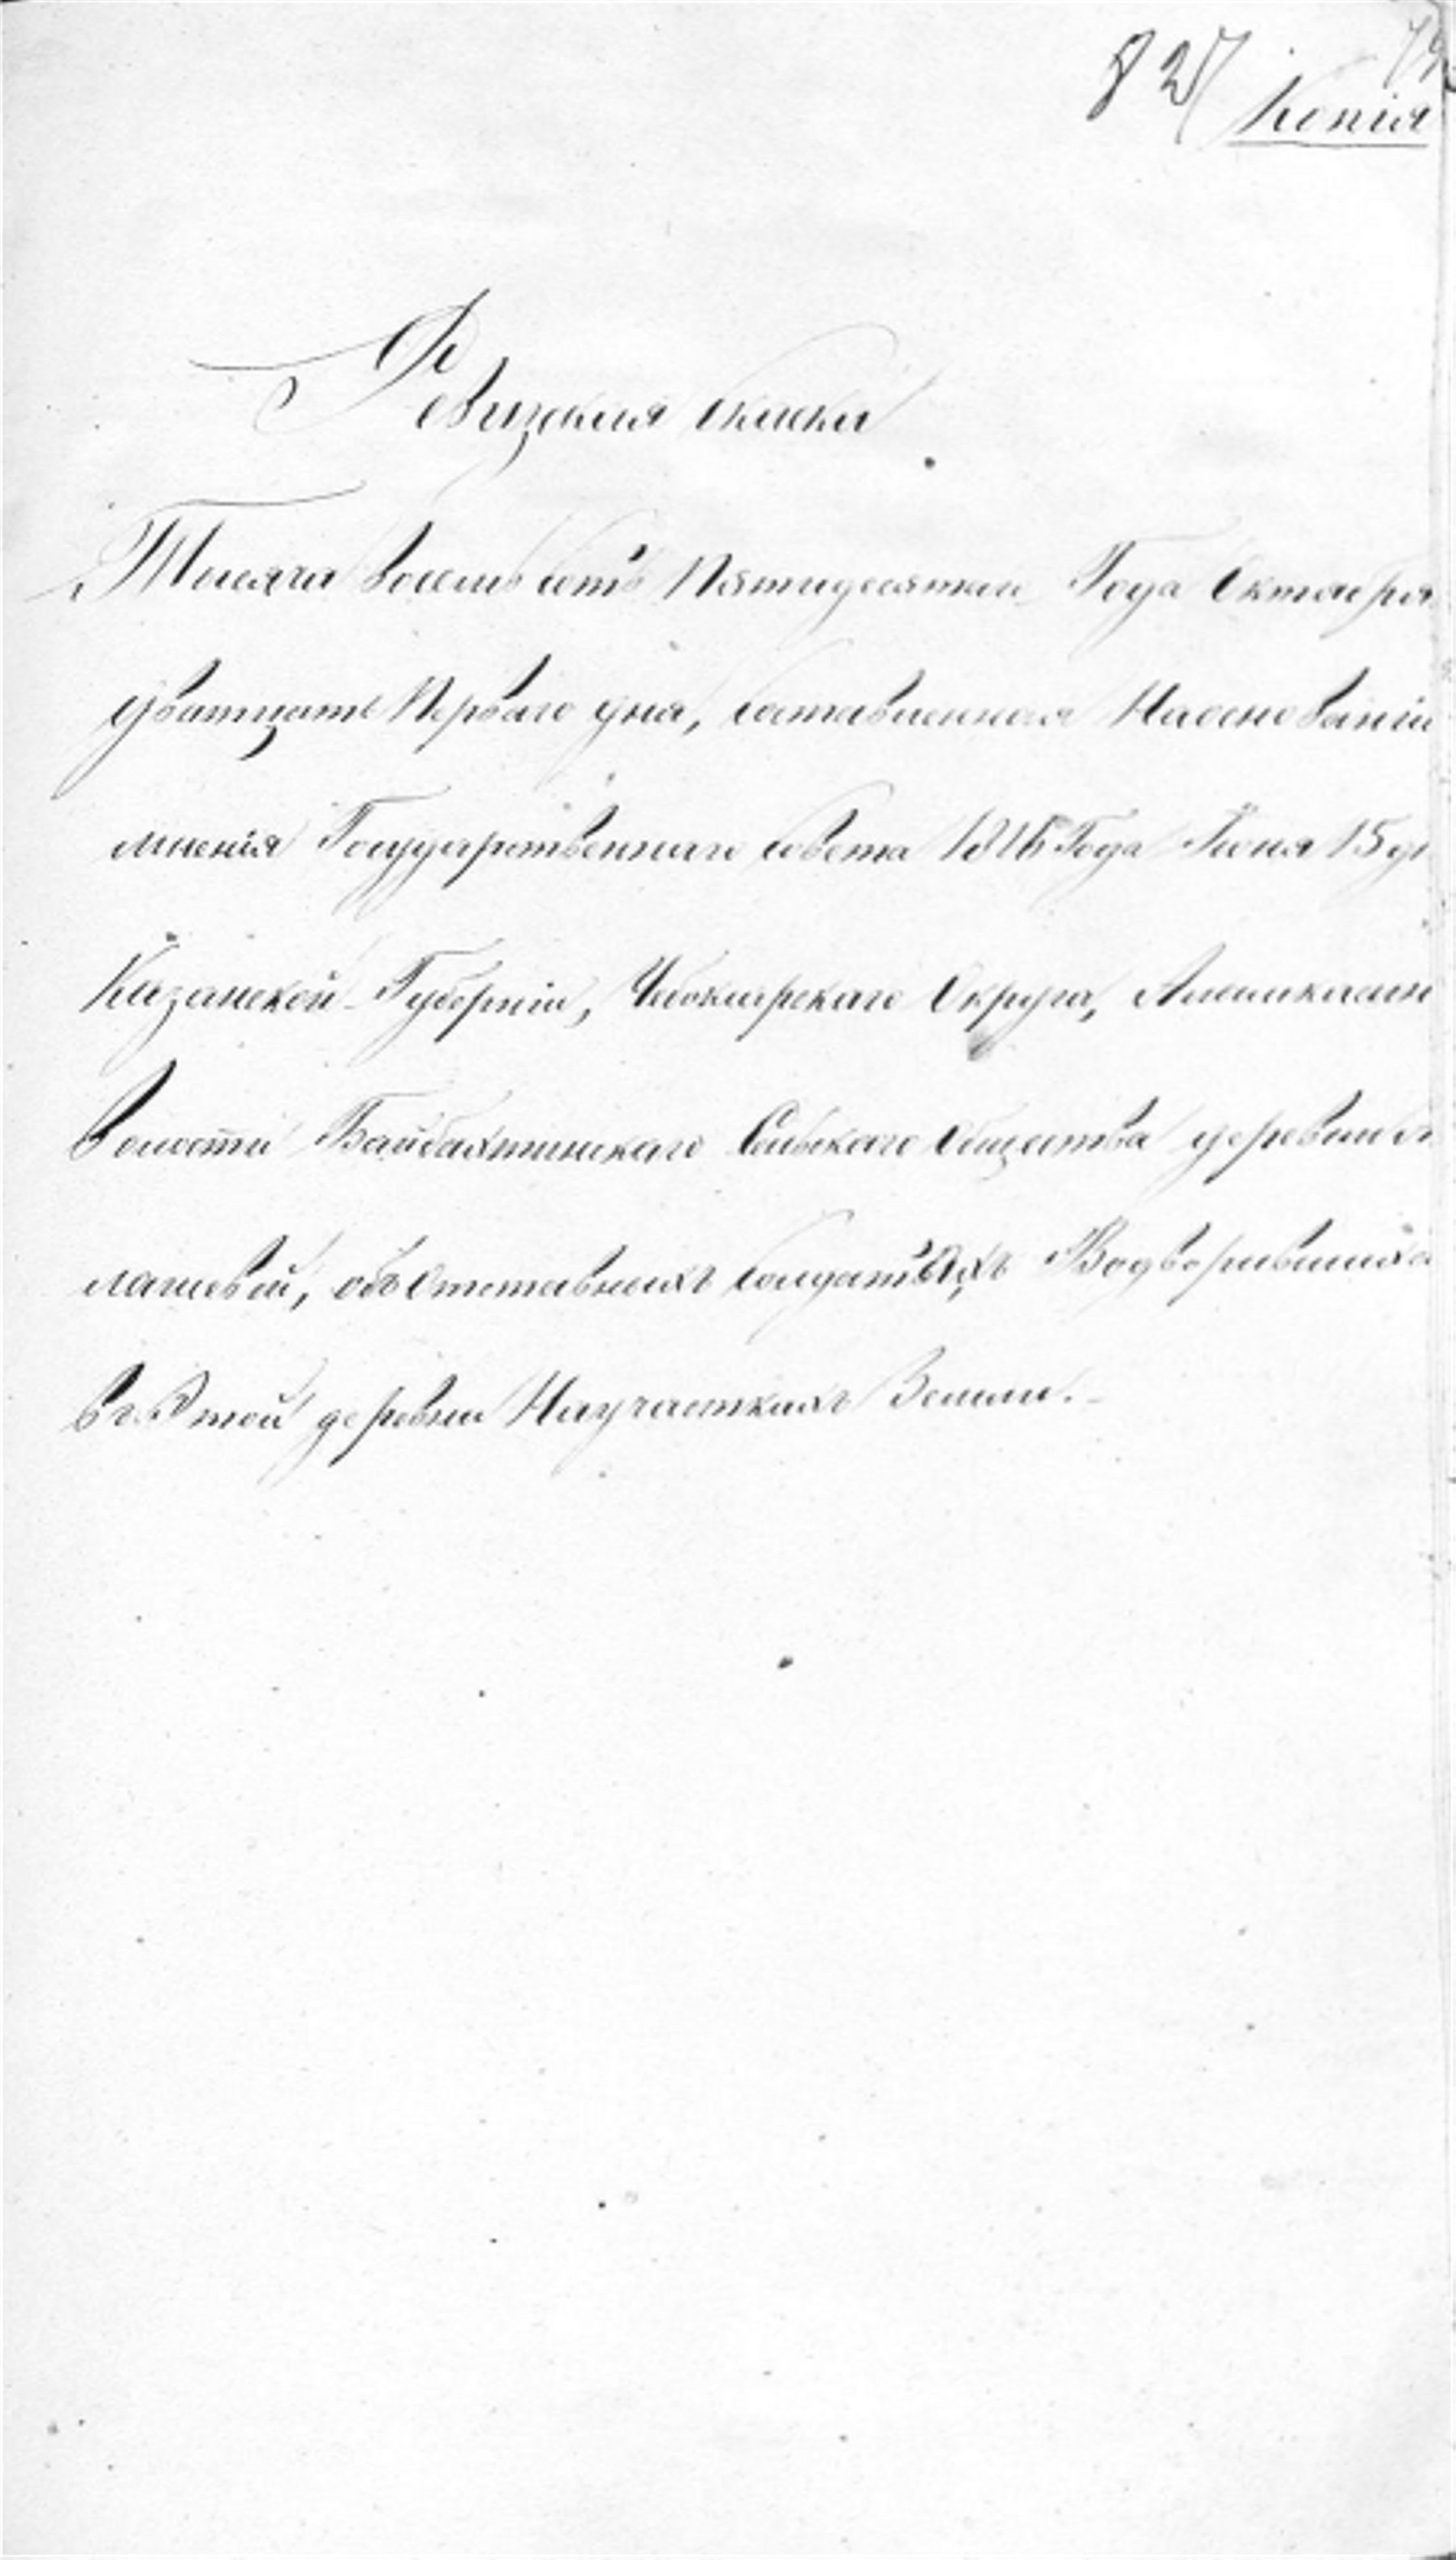 827
Копія
Ревизская сказка
Тысяча восемь сотъ Пятидесятаго Года Октября
дватцать Перваго дня, составленная Наосновании
мнения Государственнаго совета 1816 Года Июня 15 дн
Казанской Губерніи, Чебоксарскаго Округа,
Волости Байбахтинскаго Сельскаго Общества деревни
лашевой, объ Отставныхъ солдатахъ Водворившихся
въ Этой деревни Научасткахъ Земли.